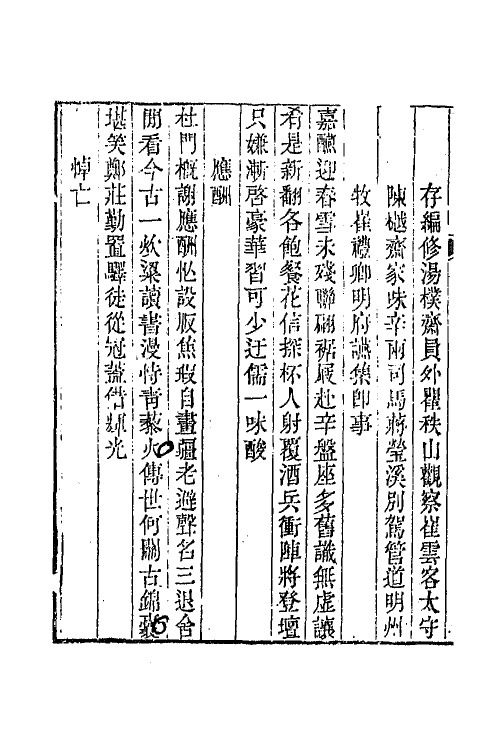 存編修湯樸齋員外瞿秩山觀察崔雲客太守
陳樾齋家味辛兩司馬蔣瑩溪別駕管道明州
牧崔禮卿明府讌集即事
嘉釀迎春雪未殘聯翩裾屐赴辛盤座多舊識無虛讓
肴是新翻各飽餐花信探杯人射覆酒兵衝陣將登壇
只嫌漸啓豪華習可少迂儒一味酸
應酬
杜門概謝應酬忙設版焦瑕自畫疆老避聲名三退舍
閒看今古一炊粱讀書漫恃靑藜火傳世何關古錦囊
堪笑鄭莊勤置驛徒從冠蓋借輝光
悼亡